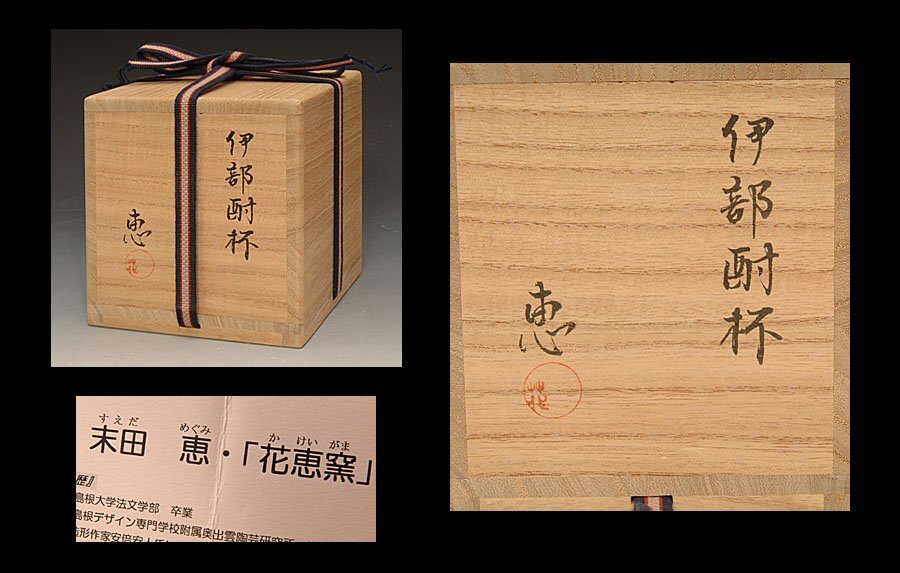 伊部酎杯
恵
伊部酎杯
恵
花
すえだ めぐみ か けい がま
末田 恵・「花恵窯」
歴』
島根大学法文学部 卒業
島根デザイン専門学校附属奥出雲陶芸研究所
造形作家安倍安人氏